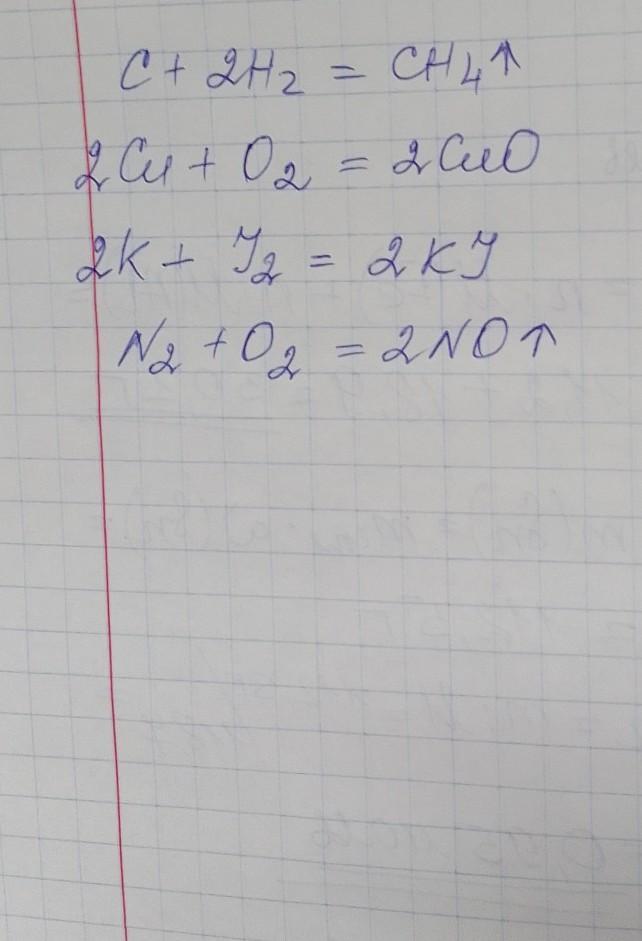 C + 2H₂ = CH₄↑
2Cu + O₂ = 2CuO
2K + J₂ = 2KJ
N₂ + O₂ = 2NO↑